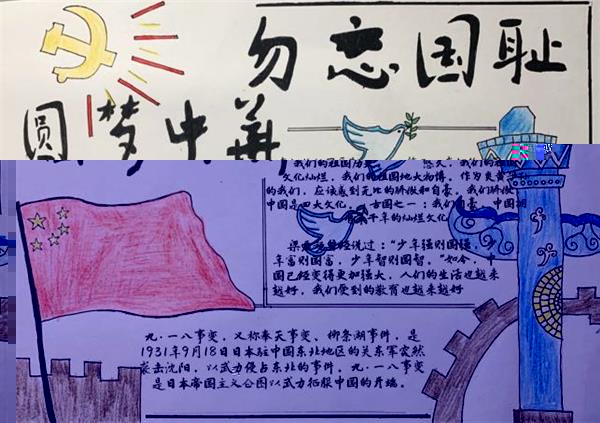 勿忘国耻
圆梦中华
我们的祖国历 悠久，我们的祖国
文化灿烂，我们的祖国地大物博，作为炎黄子孙
的我们，应该感到无比的骄傲和自豪，我们骄傲
中国是四大文化 古国之一；我们自豪，中国拥
千年的灿烂文化
曾经说过："少年强则国强，少
年富则国富，少年智则国智。"如今，中
国已经变得更加强大，人们的生活也越来
越好，我们受到的教育也越来越好
九·一八事变，又称奉天事变、柳条湖事件，是
1931年9月18日日本驻中国东北地区的关东军突然
袭击沈阳，以武力侵占东北的事件。九·一八事变
是日本帝国主义企图以武力征服中国的开端。